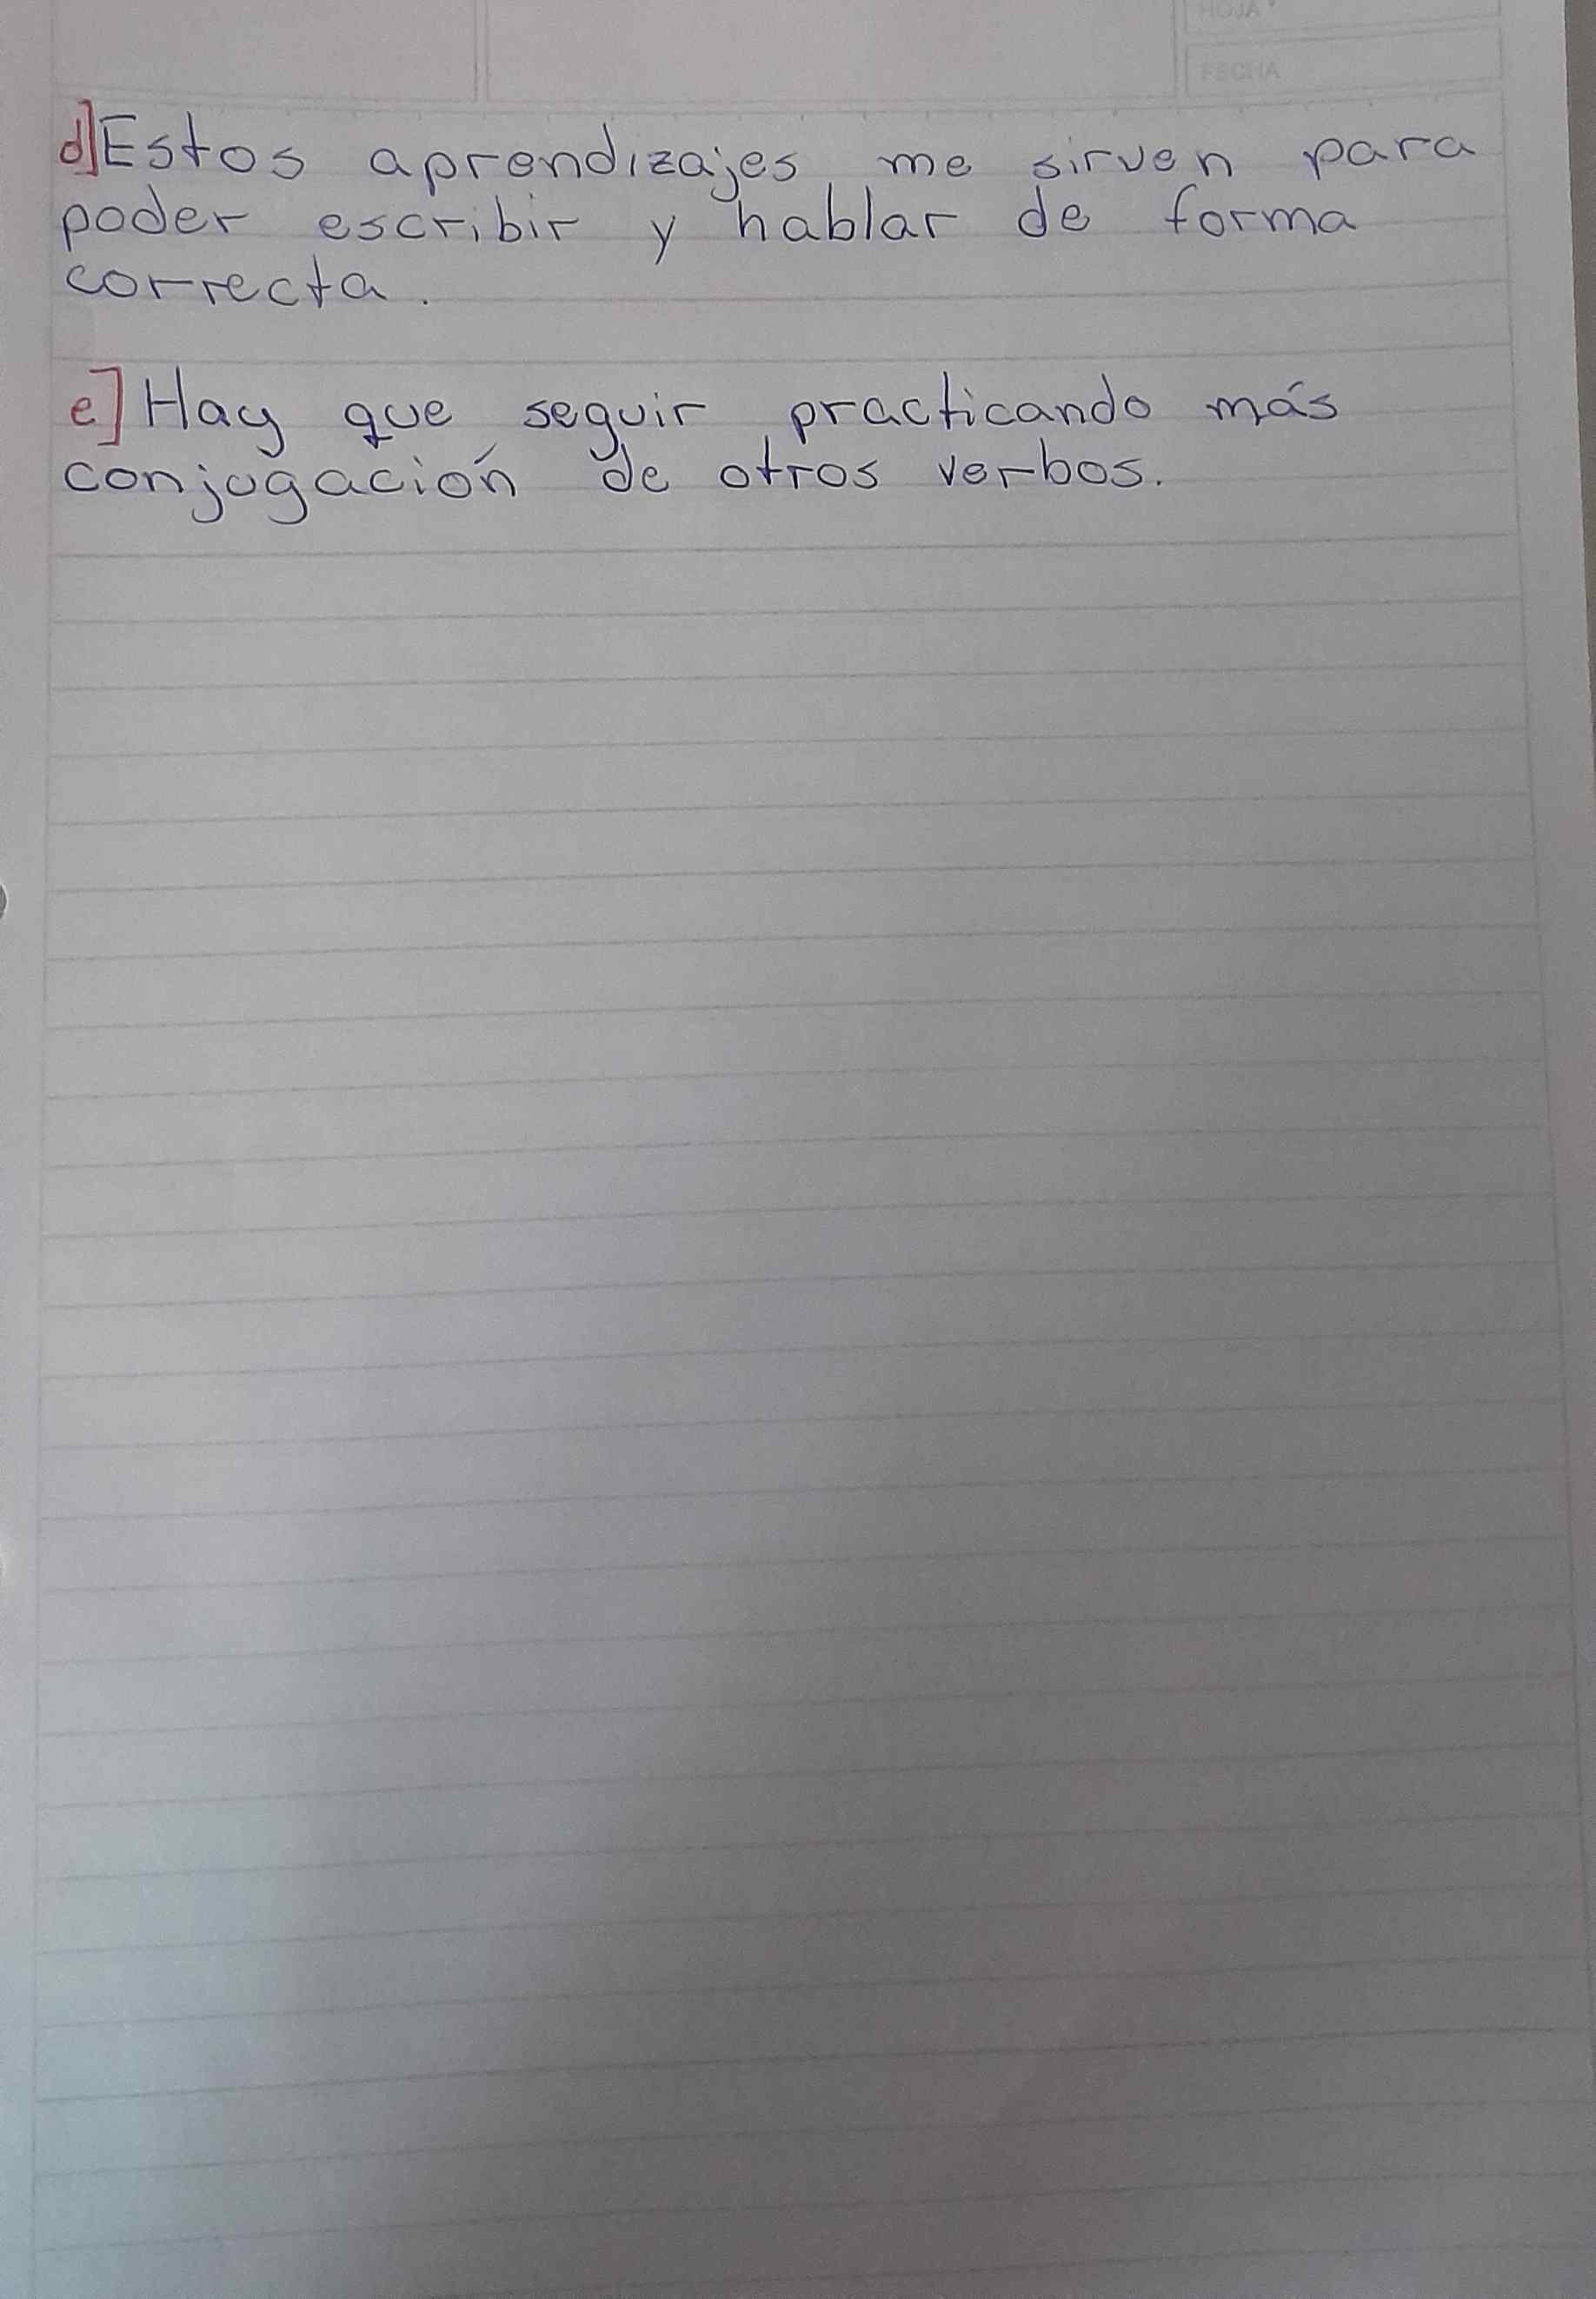 HOJA
FECHA
d] Estos aprendizajes me sirven para
poder escribir y hablar de forma
correcta.
e] Hay que seguir practicando más
conjugación de otros verbos.